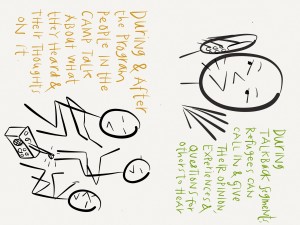 During & After
the Program
People in the
Camp Talk
About what
they Heard &
Their Thoughts
on it
During
TALKBack Segments
Refugees can
call in & Give
Their opinion
Experiences &
Questions for
others to Hear